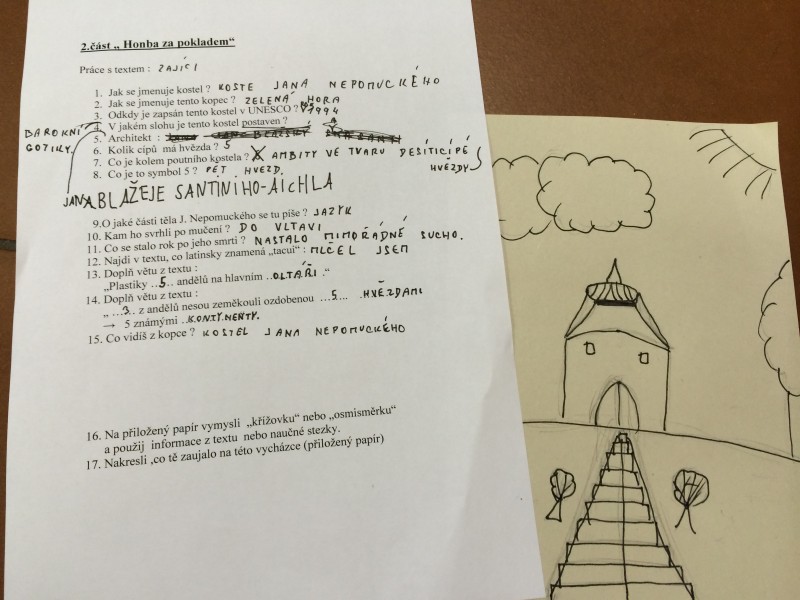 2.část „ Honba za pokladem“
Práce s textem : ZAJÍCI
1. Jak se jmenuje kostel ? KOSTE JANA NEPOMUCKÉHO
2. Jak se jmenuje tento kopec ? ZELENÁ HORA
3. Odkdy je zapsán tento kostel v UNESCO ? 1994
4. V jakém slohu je tento kostel postaven ?
BAROKNÍ
GOTIKY.
5. Architekt :
6. Kolik cípů má hvězda ? 5
7. Co je kolem poutního kostela ? AMBITY VE TVARU DESÍTICÍPÉ
HVĚZDY
8. Co je to symbol 5 ? PĚT HVEZD.
JANA BLAŽEJE SANTINIHO-AICHLA
9.O jaké části těla J. Nepomuckého se tu píše ? JAZYK
10. Kam ho svrhli po mučení ? DO VLTAVI
11. Co se stalo rok po jeho smrti ? NASTALO MIMOŘÁDNÉ SUCHO.
12. Najdi v textu, co latinsky znamená „tacui“ : MLČEL JSEM
13. Doplň větu z textu :
„Plastiky ..5.. andělů na hlavním ..OLTÁŘI .“
14. Doplň větu z textu :
„ ...3.. z andělů nesou zeměkouli ozdobenou ...5.... .HVĚZDAMI
→ 5 známými ..KONTYNENTY.
15. Co vidíš z kopce ? KOSTEL JANA NEPOMUCKÉHO
16. Na přiložený papír vymysli „křížovku“ nebo „osmisměrku“
a použij informace z textu nebo naučné stezky.
17. Nakresli ,co tě zaujalo na této vycházce (přiložený papír)